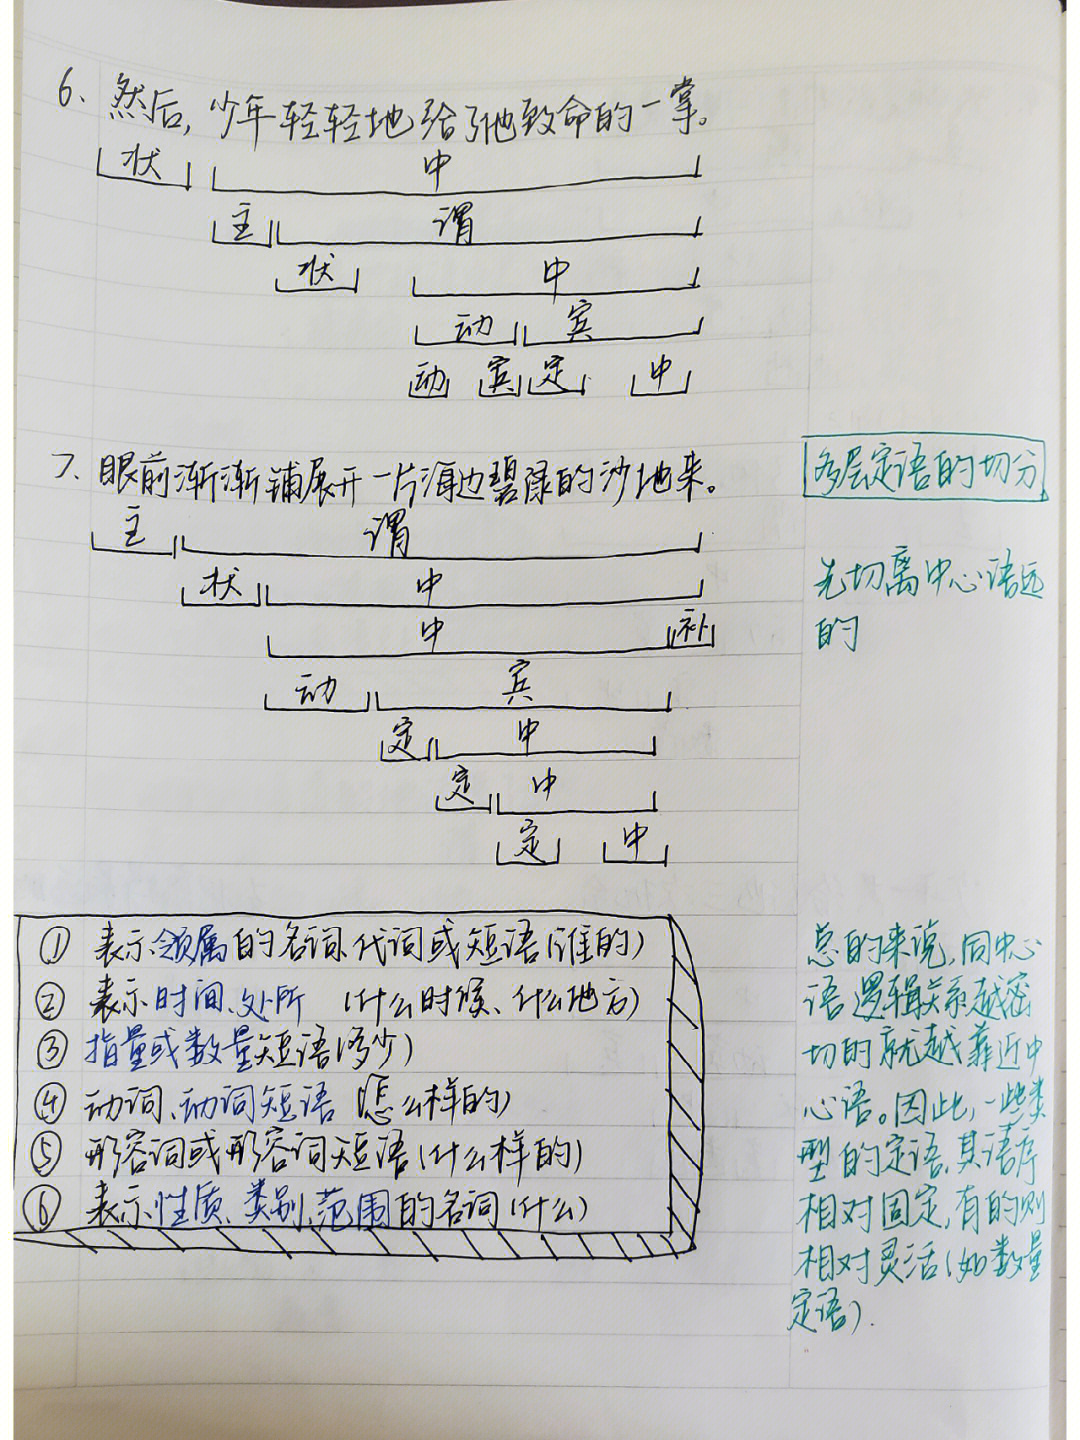 6、然后,少年轻轻地给了他致命的一掌。
状 中
主 谓
状 中
动 宾
动 宾 定 中
7、眼前渐渐铺展开一片海边碧绿的沙地来。
主 谓
状 中
中 补
动 宾
定 中
定 中
定 中
多层定语的切分
先切离中心语远
的
① 表示领属的名词、代词或短语(谁的)
② 表示时间、处所 (什么时候、什么地方)
③ 指量或数量短语(多少)
④ 动词、动词短语 (怎么样的)
⑤ 形容词或形容词短语(什么样的)
⑥ 表示性质、类别、范围的名词(什么)
总的来说,同中心
语逻辑关系越密
切的就越靠近中
心语。因此,一些类
型的定语,其语序
相对固定,有的则
相对灵活(如数量
定语).